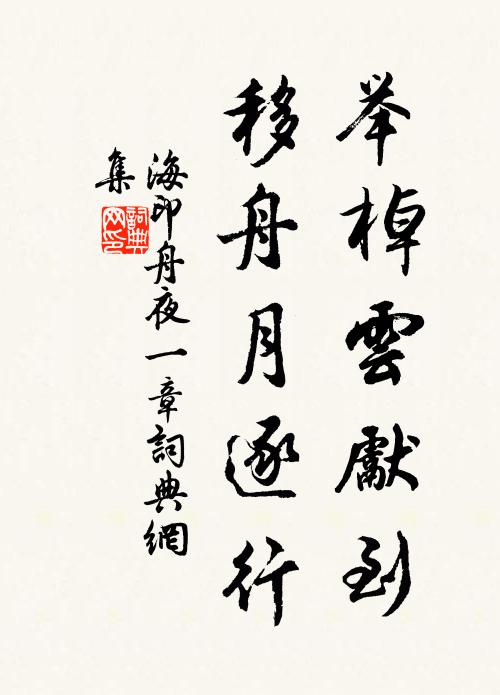 举棹雲獻到
移舟月逐行
海印舟夜一章詞典網
集
詞典
网印